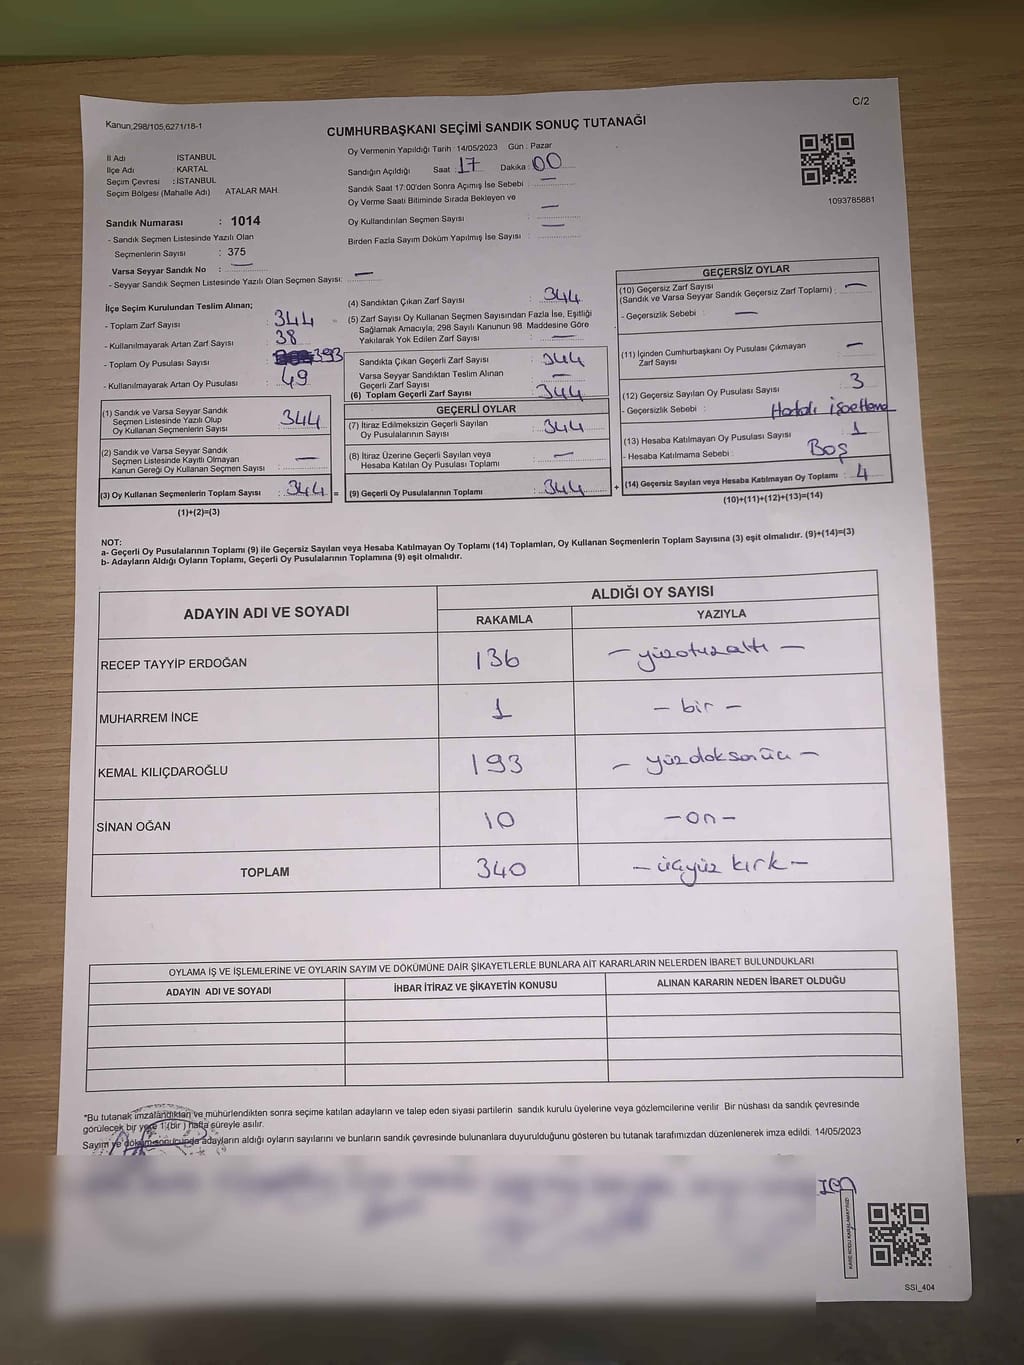 C/2
Kanun,298/105,6271/18-1
CUMHURBAŞKANI SEÇİMİ SANDIK SONUÇ TUTANAĞI
İl Adı İSTANBUL
İlçe Adı : KARTAL
Seçim Çevresi : İSTANBUL
Seçim Bölgesi (Mahalle Adı) ATALAR MAH.
Sandık Numarası : 1014
- Sandık Seçmen Listesinde Yazılı Olan
Seçmenlerin Sayısı : 375
Varsa Seyyar Sandık No : —
- Seyyar Sandık Seçmen Listesinde Yazılı Olan Seçmen Sayısı: —
Oy Vermenin Yapıldığı Tarih : 14/05/2023 Gün : Pazar
Sandığın Açıldığı Saat : 17 Dakika : 00
Sandık Saat 17:00'den Sonra Açımış İse Sebebi : —
Oy Verme Saati Bitiminde Sırada Bekleyen ve
Oy Kullandırılan Seçmen Sayısı : —
Birden Fazla Sayım Döküm Yapılmış İse Sayısı : —
1093785881
İlçe Seçim Kurulundan Teslim Alınan;
- Toplam Zarf Sayısı : 344
- Kullanılmayarak Artan Zarf Sayısı : 38
- Toplam Oy Pusulası Sayısı : 393
- Kullanılmayarak Artan Oy Pusulası : 49
(1) Sandık ve Varsa Seyyar Sandık
Seçmen Listesinde Yazılı Olup
Oy Kullanan Seçmenlerin Sayısı : 344
(2) Sandık ve Varsa Seyyar Sandık
Seçmen Listesinde Kayıtlı Olmayan
Kanun Gereği Oy Kullanan Seçmen Sayısı : —
(3) Oy Kullanan Seçmenlerin Toplam Sayısı : 344 =
(1)+(2)=(3)
(4) Sandıktan Çıkan Zarf Sayısı : 344
(5) Zarf Sayısı Oy Kullanan Seçmen Sayısından Fazla İse, Eşitliği
Sağlamak Amacıyla; 298 Sayılı Kanunun 98. Maddesine Göre
Yakılarak Yok Edilen Zarf Sayısı : —
Sandıkta Çıkan Geçerli Zarf Sayısı : 344
Varsa Seyyar Sandıktan Teslim Alınan
Geçerli Zarf Sayısı : —
(6) Toplam Geçerli Zarf Sayısı : 344
GEÇERLİ OYLAR
(7) İtiraz Edilmeksizin Geçerli Sayılan
Oy Pusulalarının Sayısı : 344
(8) İtiraz Üzerine Geçerli Sayılan veya
Hesaba Katılan Oy Pusulası Toplamı : —
(9) Geçerli Oy Pusulalarının Toplamı : 344 +
GEÇERSİZ OYLAR
(10) Geçersiz Zarf Sayısı
(Sandık ve Varsa Seyyar Sandık Geçersiz Zarf Toplamı) : —
- Geçersizlik Sebebi : —
(11) İçinden Cumhurbaşkanı Oy Pusulası Çıkmayan
Zarf Sayısı : —
(12) Geçersiz Sayılan Oy Pusulası Sayısı : 3
- Geçersizlik Sebebi : Hatalı
(13) Hesaba Katılmayan Oy Pusulası Sayısı : 1
- Hesaba Katılmama Sebebi : Boş
(14) Geçersiz Sayılan veya Hesaba Katılmayan Oy Toplamı : 4
(10)+(11)+(12)+(13)=(14)
NOT:
a- Geçerli Oy Pusulalarının Toplamı (9) ile Geçersiz Sayılan veya Hesaba Katılmayan Oy Toplamı (14) Toplamları, Oy Kullanan Seçmenlerin Toplam Sayısına (3) eşit olmalıdır. (9)+(14)=(3)
b- Adayların Aldığı Oyların Toplamı, Geçerli Oy Pusulalarının Toplamına (9) eşit olmalıdır.
ADAYIN ADI VE SOYADI ALDIĞI OY SAYISI
RAKAMLA YAZIYLA
RECEP TAYYİP ERDOĞAN 136 — yüzotuzaltı —
MUHARREM İNCE 1 — bir —
KEMAL KILIÇDAROĞLU 193 — yüzdoksanüç —
SİNAN OĞAN 10 — on —
TOPLAM 340 — üçyüz kırk —
OYLAMA İŞ VE İŞLEMLERİNE VE OYLARIN SAYIM VE DÖKÜMÜNE DAİR ŞİKAYETLERLE BUNLARA AİT KARARLARIN NELERDEN İBARET BULUNDUKLARI
ADAYIN ADI VE SOYADI İHBAR İTİRAZ VE ŞİKAYETİN KONUSU ALINAN KARARIN NEDEN İBARET OLDUĞU
*Bu tutanak imzalandıktan ve mühürlendikten sonra seçime katılan adayların ve talep eden siyasi partilerin sandık kurulu üyelerine veya gözlemcilerine verilir. Bir nüshası da sandık çevresinde
görülecek bir yere 1 (bir) hafta süreyle asılır.
Sayım ve döküm sonucunda adayların aldığı oyların sayılarını ve bunların sandık çevresinde bulunanlara duyurulduğunu gösteren bu tutanak tarafımızdan düzenlenerek imza edildi. 14/05/2023
KARE KODU KARALAMAYINIZ!
SSI_404